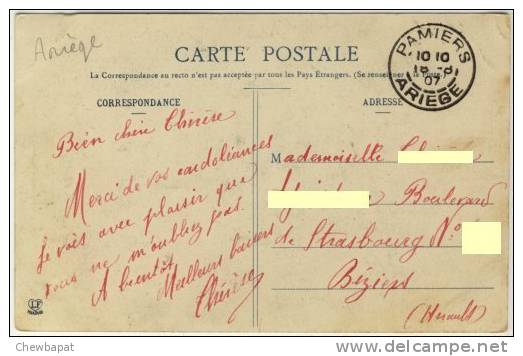 Ariège
CARTE POSTALE
La Correspondance au recto n'est pas acceptée par tous les Pays Étrangers. (Se renseigner à la Poste.)
PAMIERS
10 10
07
ARIEGE
CORRESPONDANCE
ADRESSE
Bien chère Thérèse
Merci de vos condoléances
Je vois avec plaisir que
vous ne m'oubliez pas.
A bientôt
Meilleurs baisers
Thérèse
Mademoiselle
Boulevard
de Strasbourg N°
Béziers
(Herault)
Chewbapat
www.delcampe.net